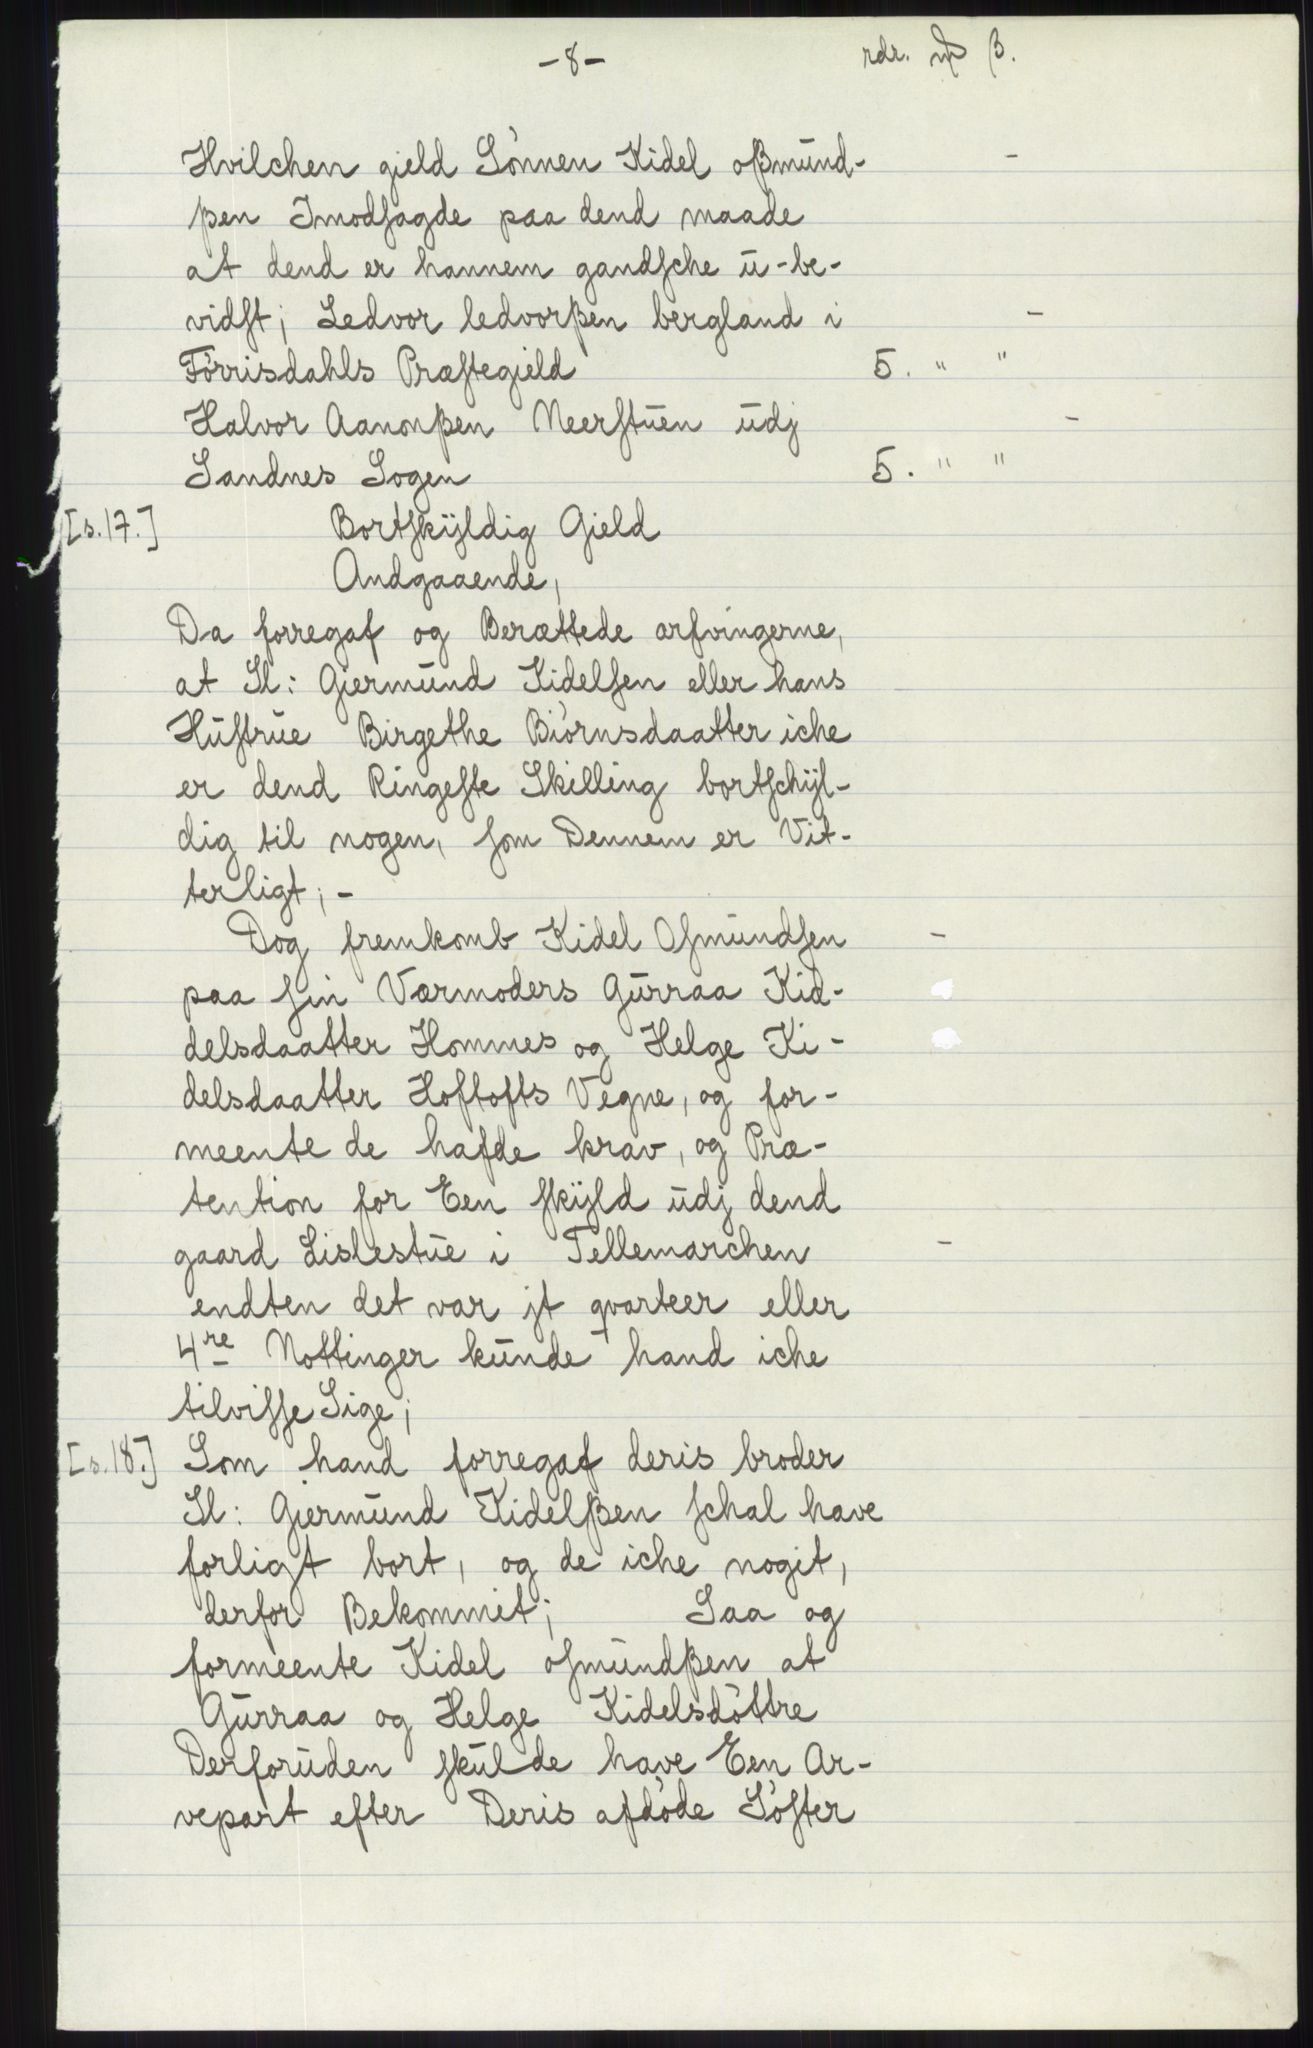 -8- rdr. ß.
Hvilchen gield Sønnen Kidel oßmünd-
ßen Imodsagde paa dend maade
at dend er hannem gandsche ü-be-
vidst; Ledvor ledvorßen bergland i
Førrisdahls Præstegield 5. " "
Halvor Aanonßen Neerstüen üdj
Sandnes Sogen 5. " "
[s.17.] Bortskÿldig Gield
Andgaaende,
Da forregaf og Berættede arfvingerne,
at Sl: Giermünd Kidelsen eller hans
Hüstrüe Birgethe Biørnsdaatter iche
er dend Ringeste Skilling bortschÿl-
dig til nogen, som Dennem er Vit-
terligt; -
Dog fremkomb Kidel Osmündsen
paa sin Værmoders Gürraa Kid-
delsdaatter Hommes og Helge Ki-
delsdaatter Hoftofts Vegne, og for-
meente de hafde krav, og Præ-
tention for Een skÿld üdj dend
gaard Lislestüe i Tellemarchen
endten det var jt qvarteer eller
4re Nottinger künde hand iche
tilvisse Sige;
[s.18.] Som hand forregaf deris broder
Sl: Giermünd Kidelßen schal have
forligt bort, og de iche nogit,
derfor Bekommit; Saa og
formeente Kidel osmündßen at
Gürraa og Helge Kidelsdøttre
Derforüden skülde have Een Ar-
vepart efter Deris afdøde Søster